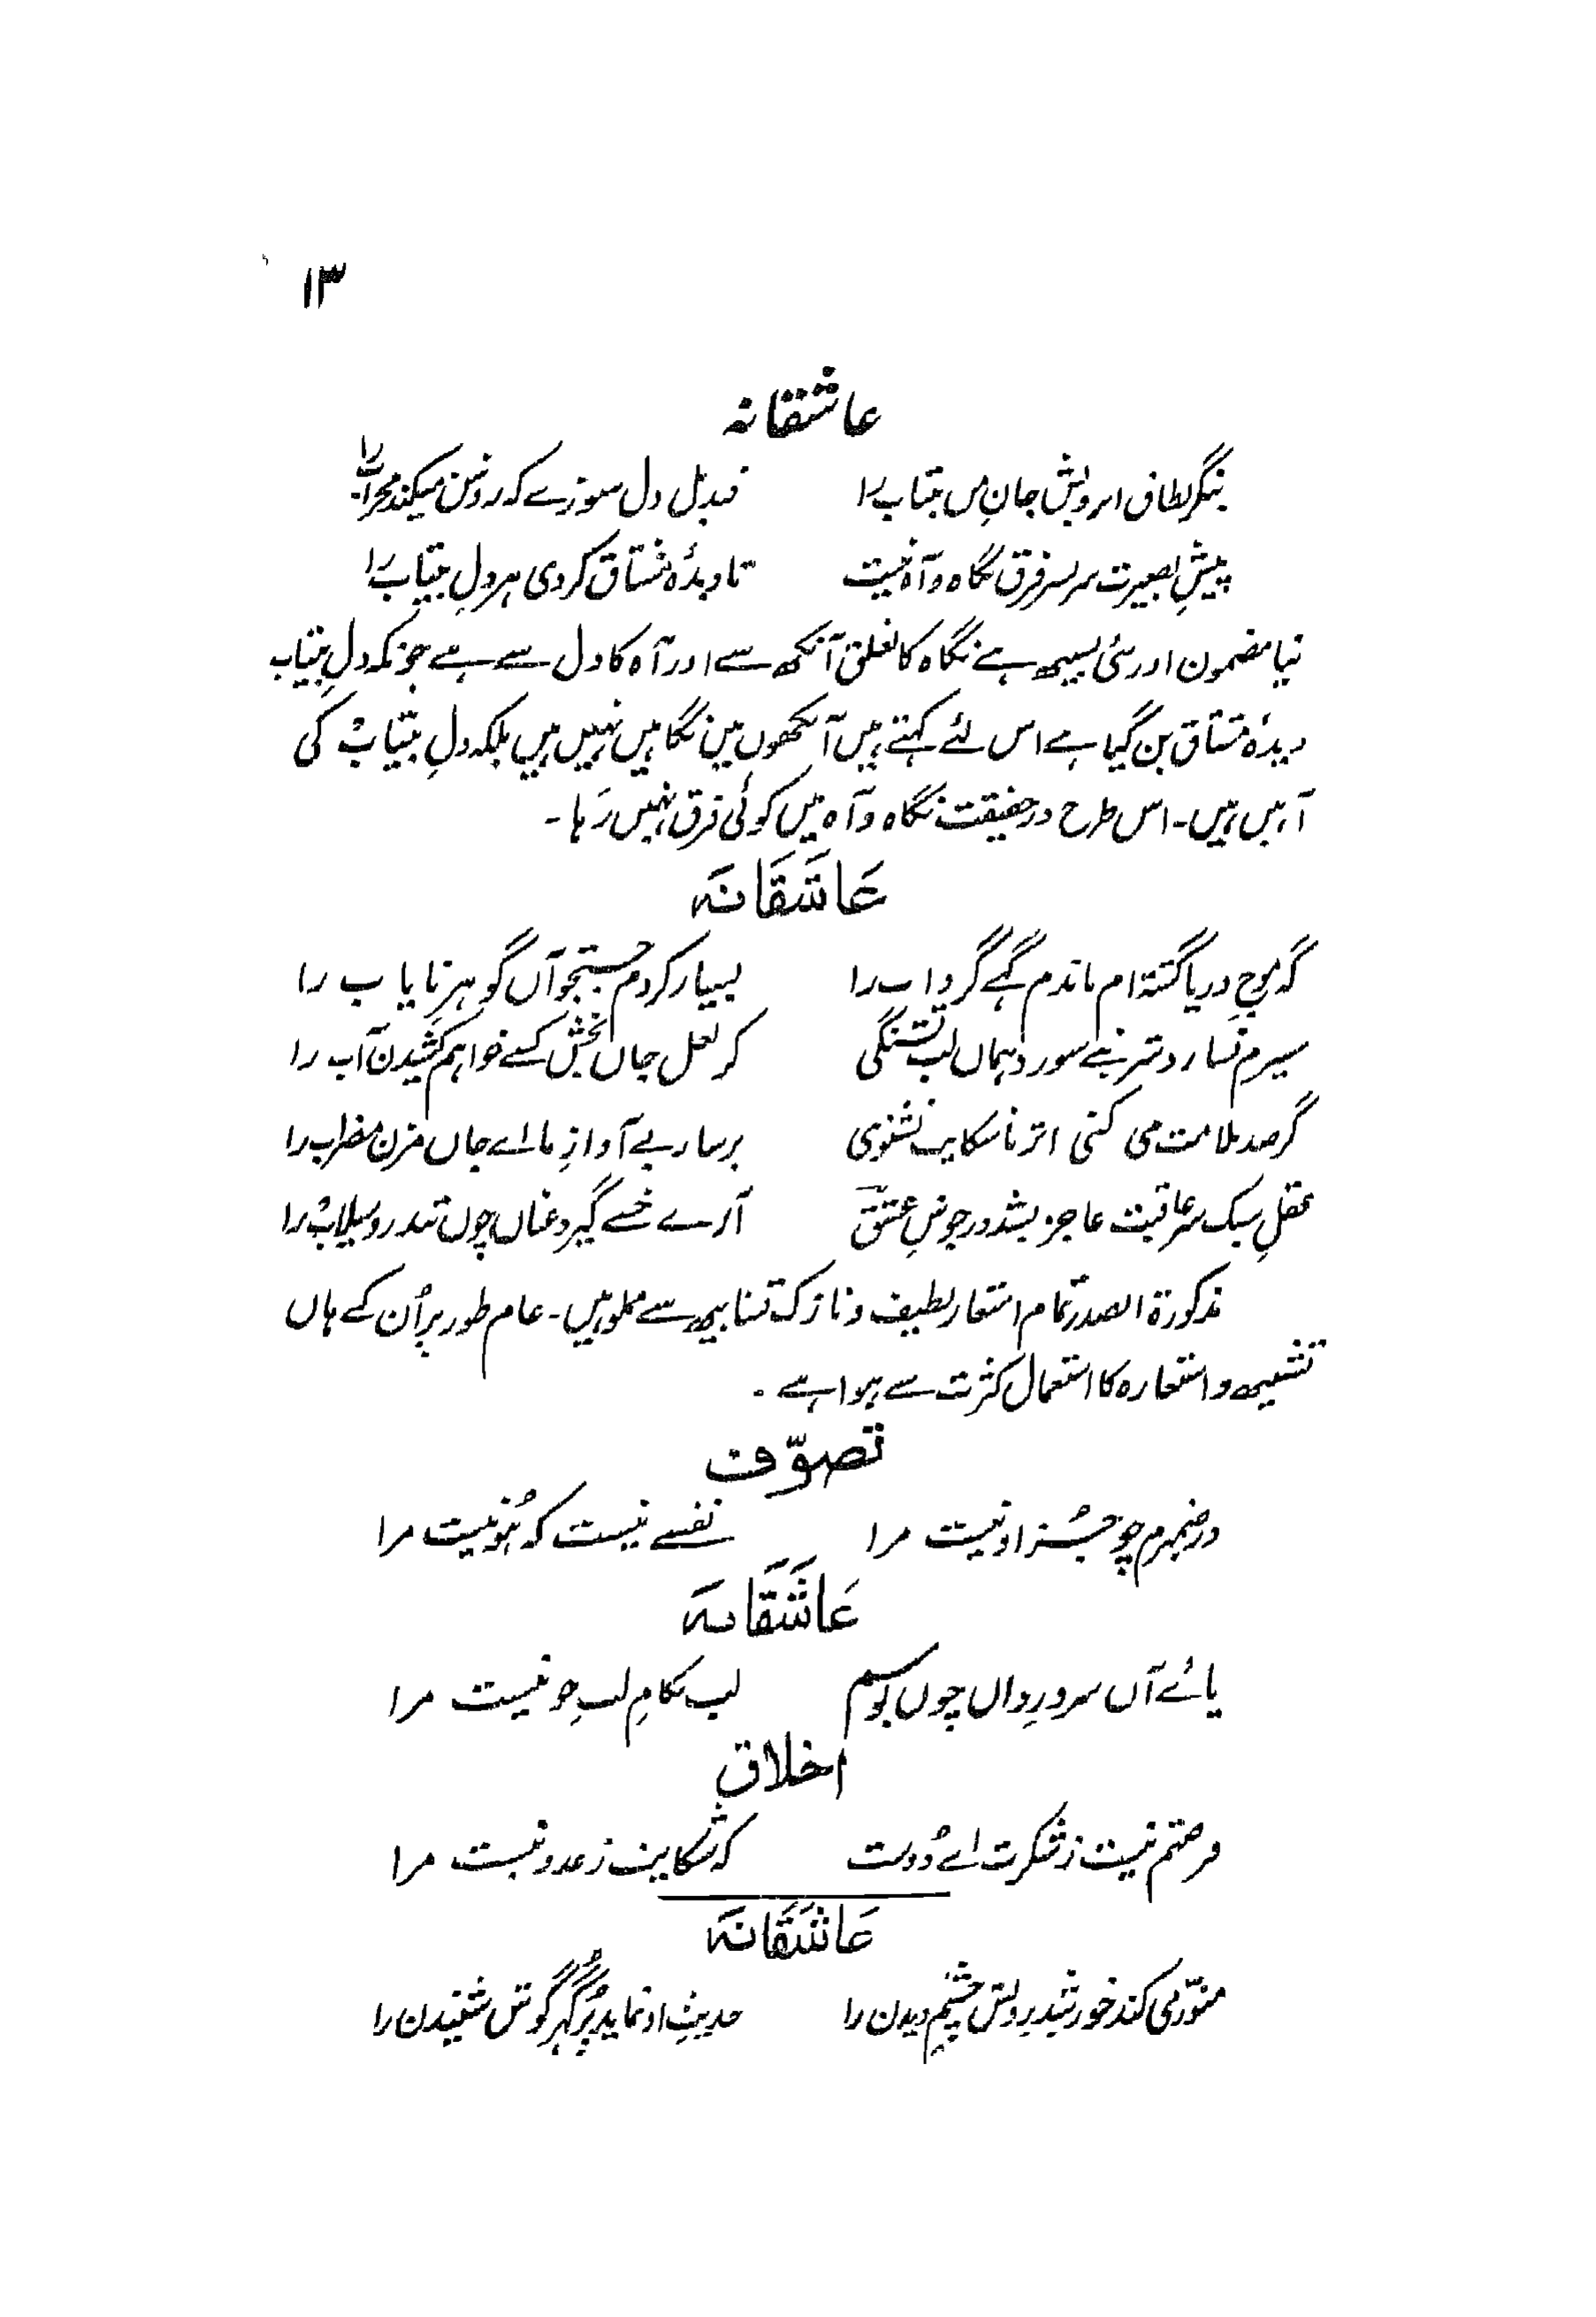 ۱۳
عاشقانہ
بنگر بطاق ابرویش جانِ من بیتاب را قندیل دل سوزے کہ روشن میکند محراب را
پیشِ بصیرت سربسر فرق نگاہ و آہ نیست تا دیدۂ مشتاق کردی ہر دلِ بیتاب را
نیا مضمون اور نئی تشبیہہ ہے نگاہ کا تعلق آنکھ سے اور آہ کا دل سے ہے چونکہ دلِ بیتاب
دیدۂ مشتاق بن گیا ہے اس لئے کہتے ہیں آنکھوں میں نگاہیں نہیں ہیں بلکہ دلِ بیتاب کی
آہیں ہیں۔ اس طرح درحقیقت نگاہ و آہ میں کوئی فرق نہیں رہا۔
عاشقانہ
گہ موجِ دریا گشتہ ام ماندم گہے گرداب را بسیار کردم جستجو آں گوہرِ نایاب را
سیرم نسازد شربتے سوزد ہماں لب تشنگی کز لعل جاں بخش کسے خواہم کشیدن آب را
گر صد ملامت می کنی از ما شکایت نشنوی بر ساز بے آوازِ ما اے جاں مزن مضراب را
عقلِ سبک سر عاقبت عاجز بشد در جوشِ عشق آرے خسے گیرد عناں چوں تند رو سیلاب را
مذکورۃ الصدر تمام اشعار لطیف و نازک تشابیہہ سے مملو ہیں۔ عام طور پر اُن کے ہاں
تشبیہہ و استعارہ کا استعمال کثرت سے ہوا ہے۔
تصوّف
در ضمیرم چو جُز او نیست مرا نفسے نیست کہ ہُو نیست مرا
عاشقانہ
پائے آں سروِ رواں چوں بوسم لب بکامِ لبِ جو نیست مرا
اخلاق
فرصتم نیست ز شکرت اے دوست کہ شکایت ز عدو نیست مرا
عاشقانہ
منوّر می کند خورشید رویش چشمِ دیدن را حدیثِ او نماید پُر گہر گوش شنیدن را